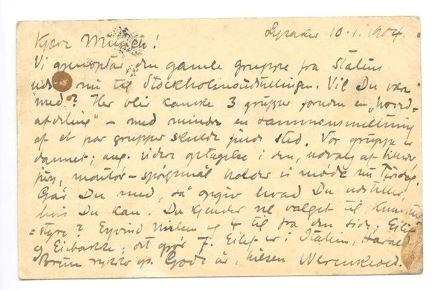 Lysaker 10.1.1904.
Kjære Munch!
Vi gjenoptar den gamle gruppe fra Statens
nu til Stockholmsudstillingen. Vil Du være
med? Her blir kanske 3 grupper foruden en
– med mindre en sammensmeltning
af et par grupper skulde finde sted. Vor gruppe er
dannet; ang. videre optagelse i den, valg af
jury, montør-spørgsmål holder vi møde nu Tirsdag.
Går Du med, så opgiv hvad Du udstiller,
hvis Du kan. Du kjender vel valget til
styre? Eyvind Nielsen og 4 til fra den side, Eilif
og Eiebakke; det gjør 7. Eilif er i Italien, saa
rykker op. Godt år, hilsen Werenskiold.